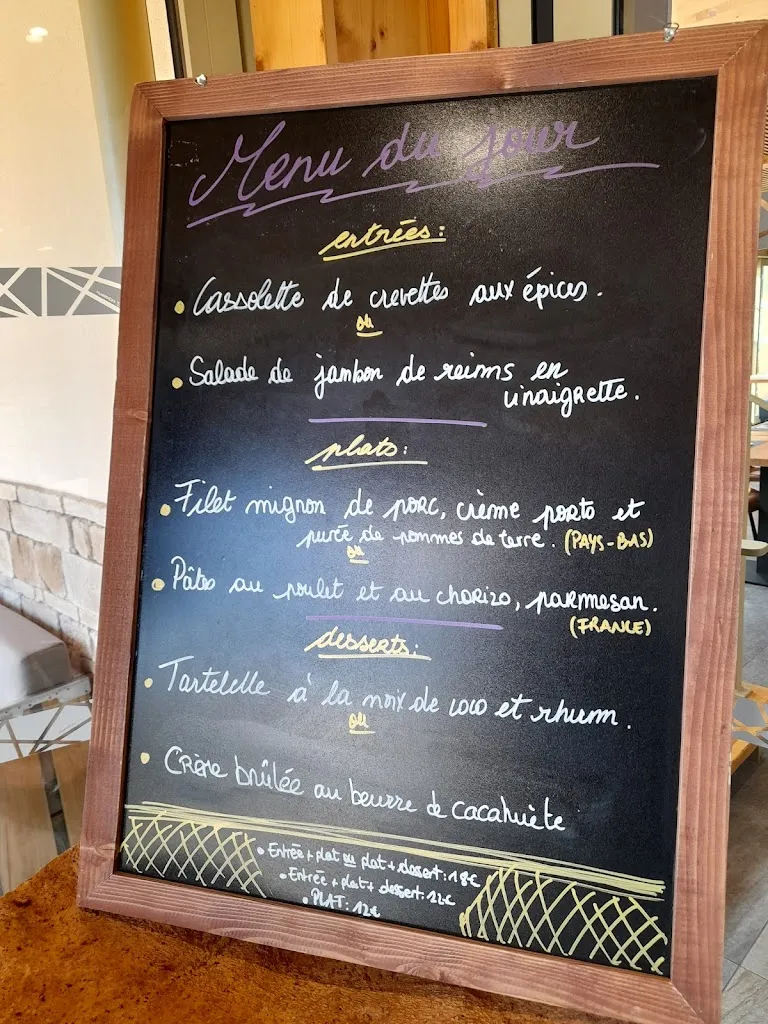 Menu du jour
entrées:
• Cassolette de crevettes aux épices.
ou
• Salade de jambon de reims en
vinaigrette.
plats:
• Filet mignon de porc, crème porto et
purée de pommes de terre. (PAYS-BAS)
ou
• Pâtes au poulet et au chorizo, parmesan.
(FRANCE)
desserts:
• Tartelette à la noix de coco et rhum.
ou
• Crème brûlée au beurre de cacahuète
• Entrée + plat ou plat + dessert: 18€
• Entrée + plat + dessert: 22€
• PLAT: 12€